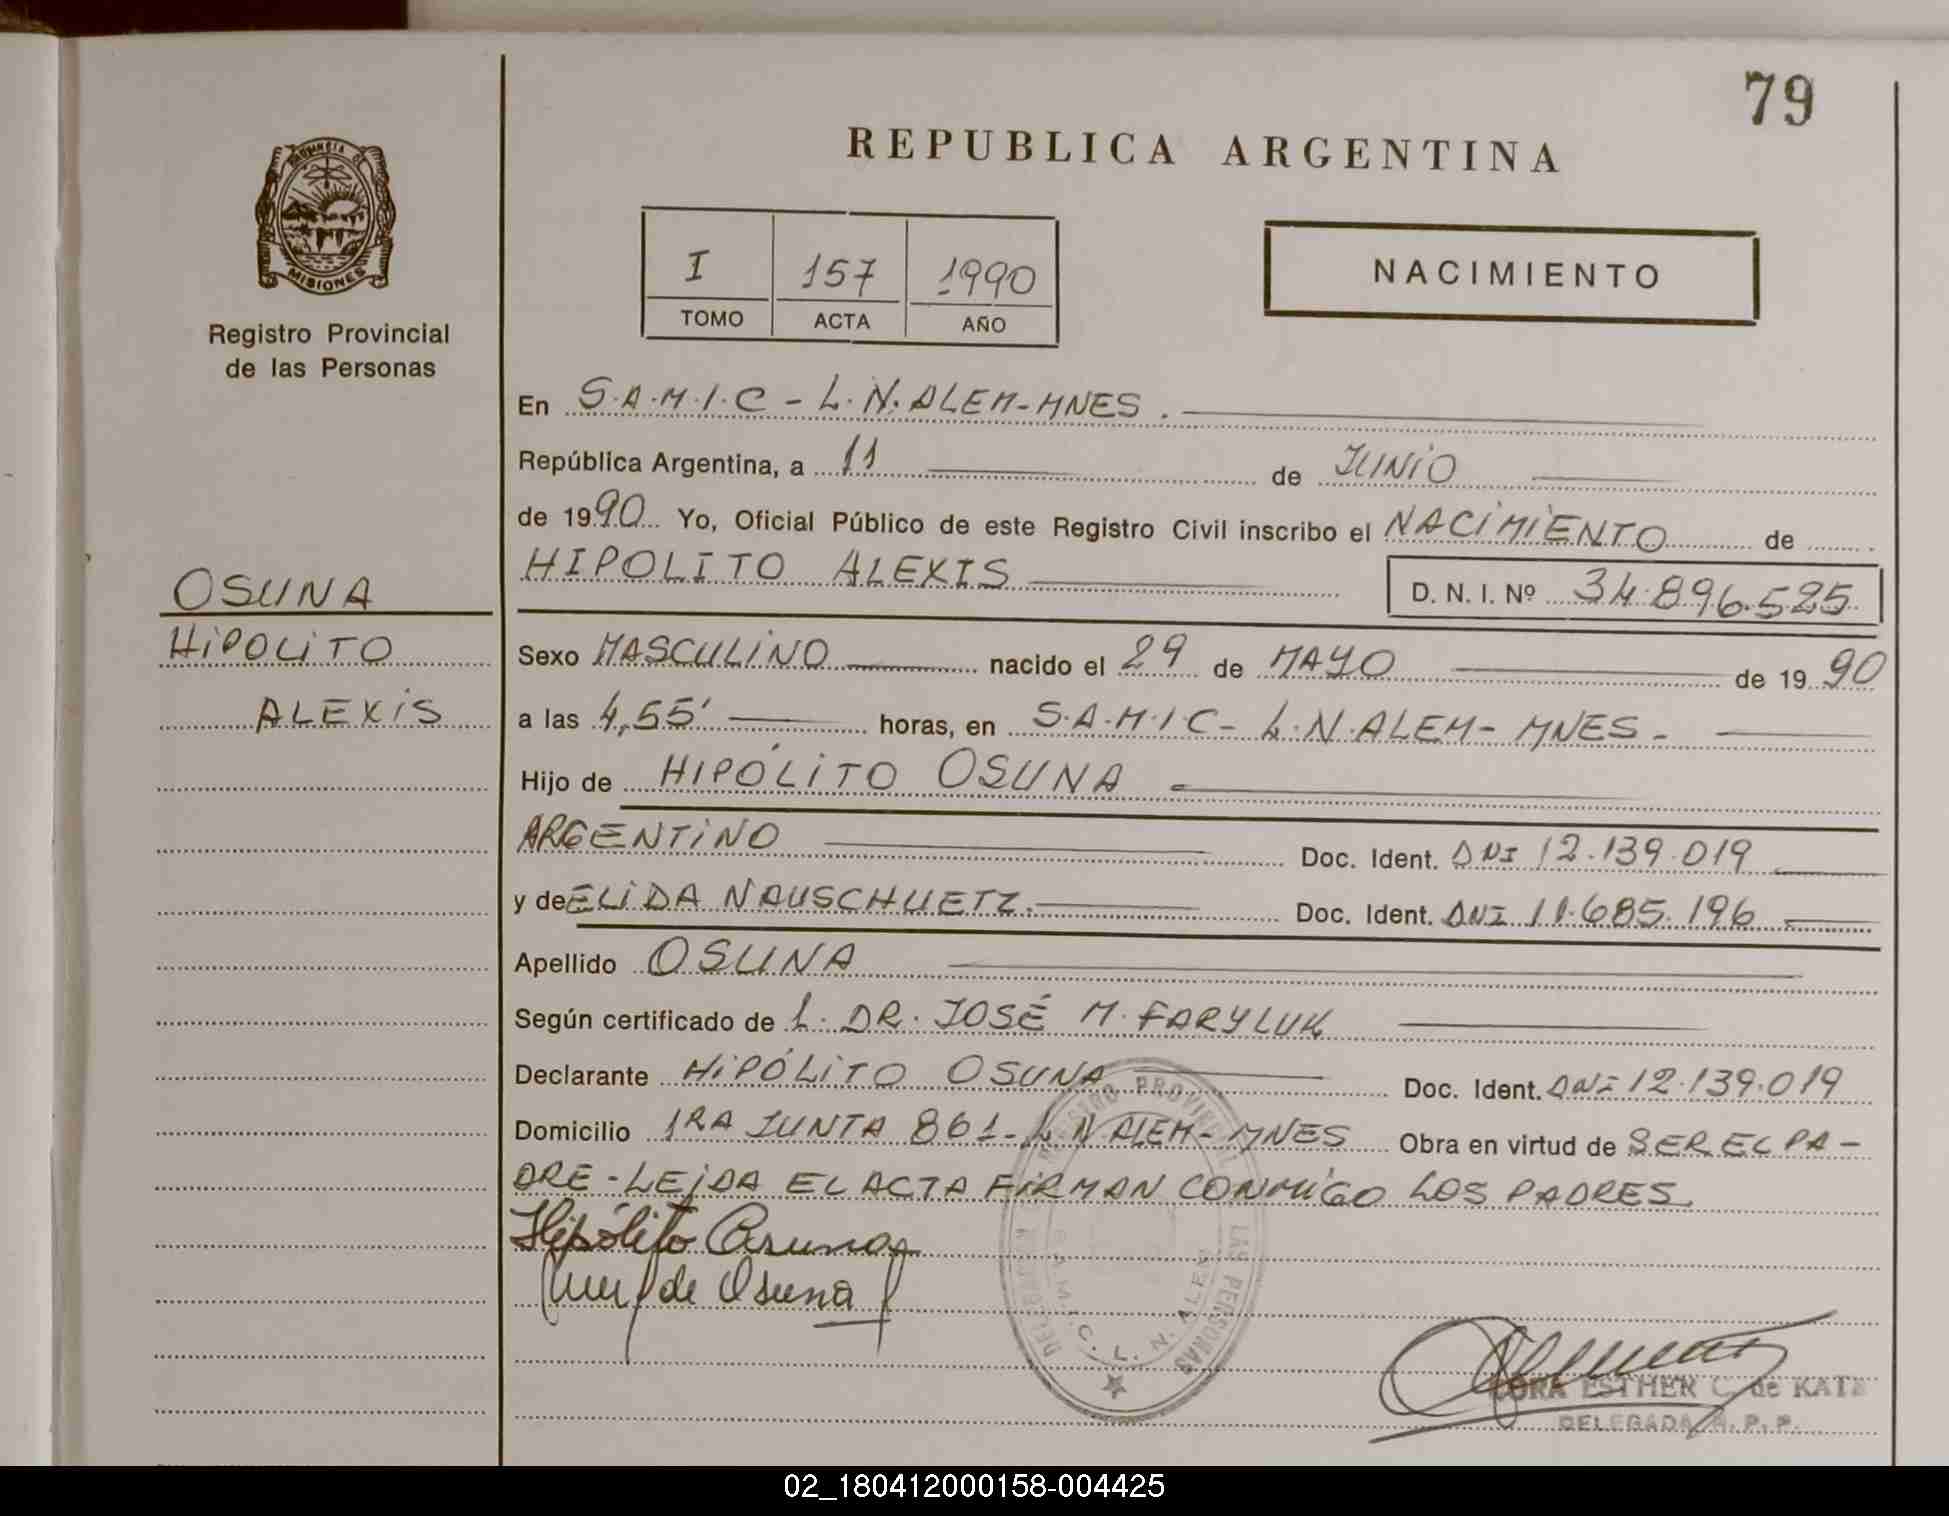 79
REPUBLICA ARGENTINA
PROVINCIA DE
MISIONES
Registro Provincial
de las Personas
I 157 1990
TOMO ACTA AÑO
NACIMIENTO
En S.A.M.I.C - L.N.ALEM-MNES.
República Argentina, a 11 de JUNIO
de 1990 Yo, Oficial Público de este Registro Civil inscribo el NACIMIENTO de
HIPOLITO ALEXIS D. N. I. Nº 34.896.525
OSUNA
HIPOLITO
ALEXIS
Sexo MASCULINO nacido el 29 de MAYO de 1990
a las 4,55' horas, en S.A.M.I.C- L.N.ALEM- MNES-
Hijo de HIPÓLITO OSUNA
ARGENTINO Doc. Ident. DNI 12.139.019
y de ELIDA NAUSCHUETZ. Doc. Ident. DNI 11.685.196
Apellido OSUNA
Según certificado de L. DR. JOSÉ M. FARYLUK
Declarante HIPÓLITO OSUNA Doc. Ident. DNI 12.139.019
Domicilio 1RA JUNTA 861- L N ALEM- MNES Obra en virtud de SER EL PA-
DRE - LEIDA EL ACTA FIRMAN CONMIGO LOS PADRES
Hipólito Osuna
de Osuna
S.A.M.I.C. L. N. ALEM
ESTHER C. de
DELEGADA R. P. P.
02_180412000158-004425